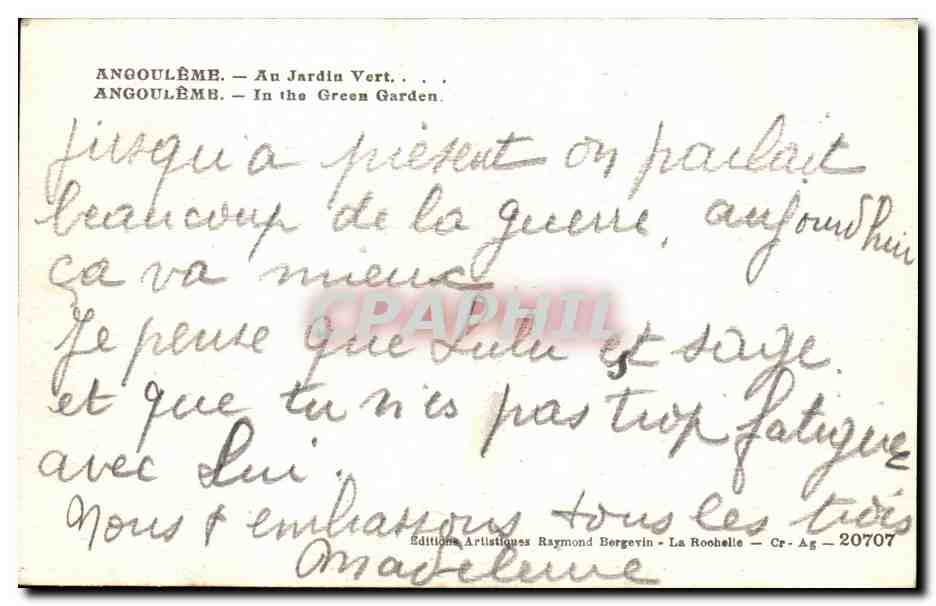 ANGOULÊME. — Au Jardin Vert. . . .
ANGOULÊME. — In the Green Garden.
jusqu'a présent on parlait
beaucoup de la guerre, aujourd'hui
ça va mieux
Je pense que Lulu est sage.
et que tu n'es pas trop fatigué
avec Lui.
Nous t embrassons tous les trois
Éditions Artistiques Raymond Bergevin - La Rochelle — Cr-Ag — 20707
Madeleine
CPAPHIL